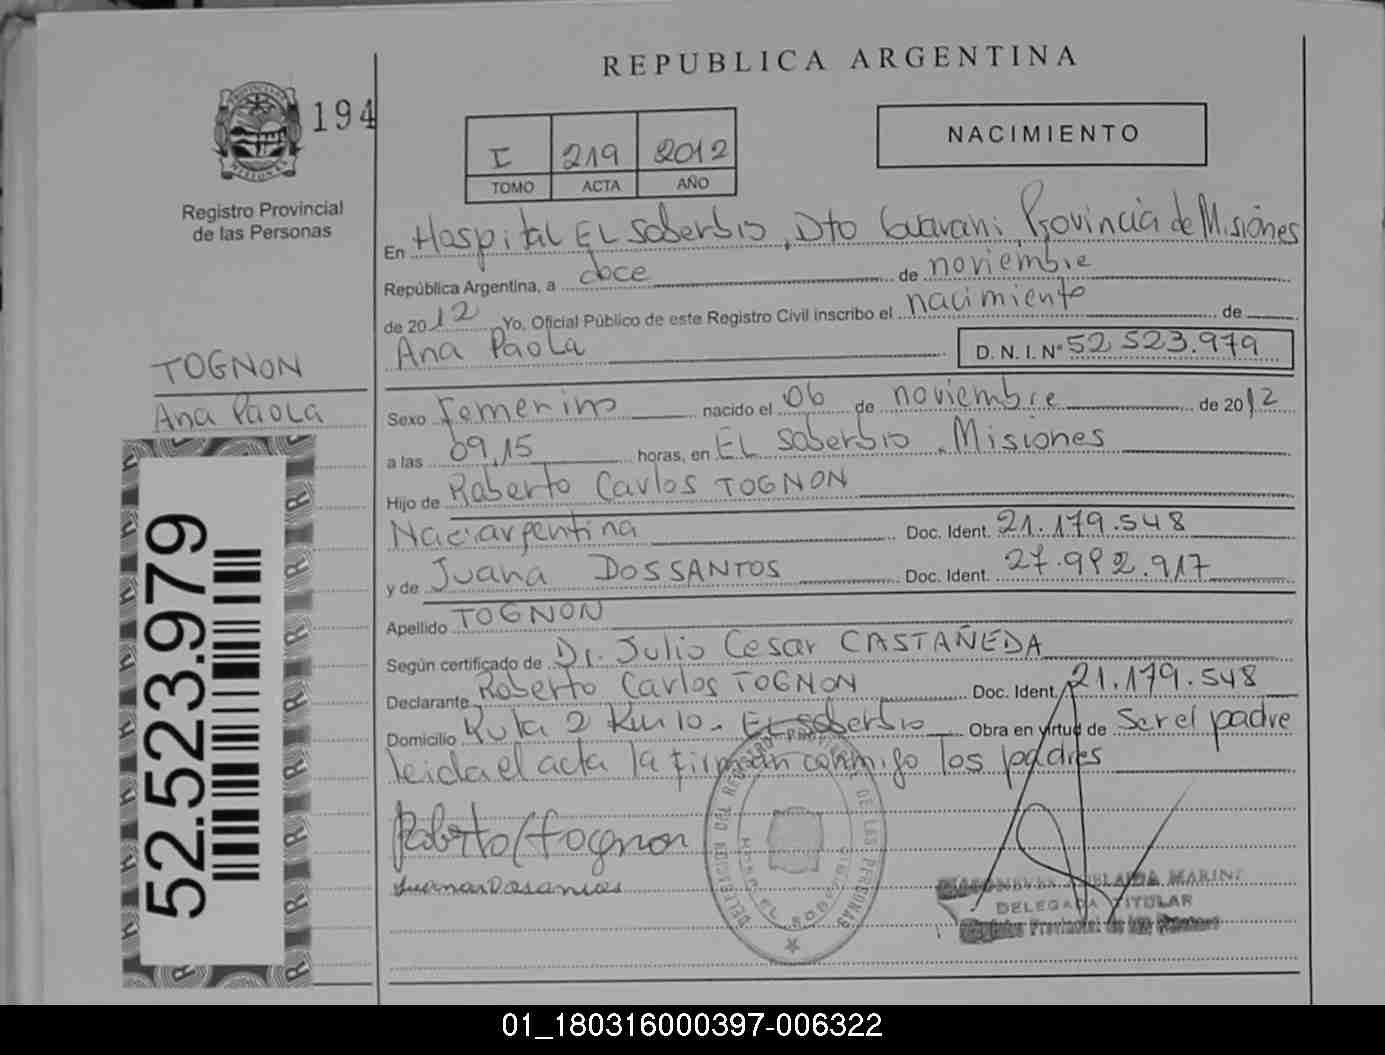 REPUBLICA ARGENTINA
194
NACIMIENTO
I 219 2012
TOMO ACTA AÑO
Registro Provincial
de las Personas
En Hospital EL Soberbio, Dto Guarani, Provincia de Misiones
República Argentina, a doce de noviembre
de 2012 Yo, Oficial Público de este Registro Civil inscribo el nacimiento de
Ana Paola D. N. I. Nº 52 523.979
TOGNON
Ana Paola
Sexo Femenino nacido el 06 de noviembre de 2012
a las 09,15 horas, en EL Soberbio, Misiones
Hijo de Roberto Carlos TOGNON
Nac: argentina Doc. Ident. 21.179.548
y de Juana DOSSANTOS Doc. Ident. 27.992.917
Apellido TOGNON
Según certificado de Dr. Julio Cesar CASTAÑEDA
Declarante Roberto Carlos TOGNON Doc. Ident. 21.179.548
Domicilio Ruta 2 Km 10. EL Soberbio Obra en virtud de ser el padre
leida el acta la firman conmigo los padres
52.523.979
Roberto C Tognon
Juana Dosantos
DELEGADA TITULAR
Registro Provincial de las Personas
01_180316000397-006322